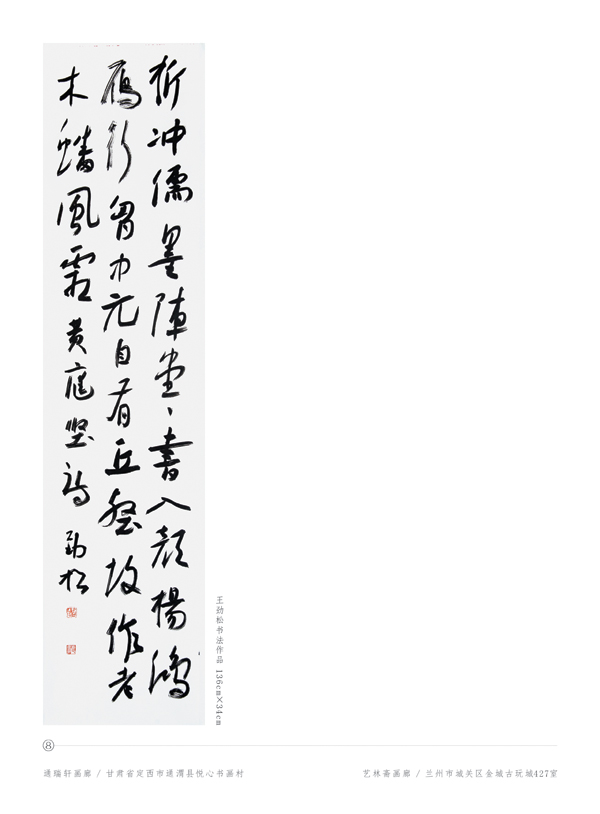 折冲儒墨陣堂、書入顏楊鴻
鴈行胷中元自有丘壑故作老
木蟠風霜 黄庭堅詩 勁松
王劲松书法作品 136cm×34cm
⑧
通瑞轩画廊 / 甘肃省定西市通渭县悦心书画村
艺林斋画廊 / 兰州市城关区金城古玩城427室